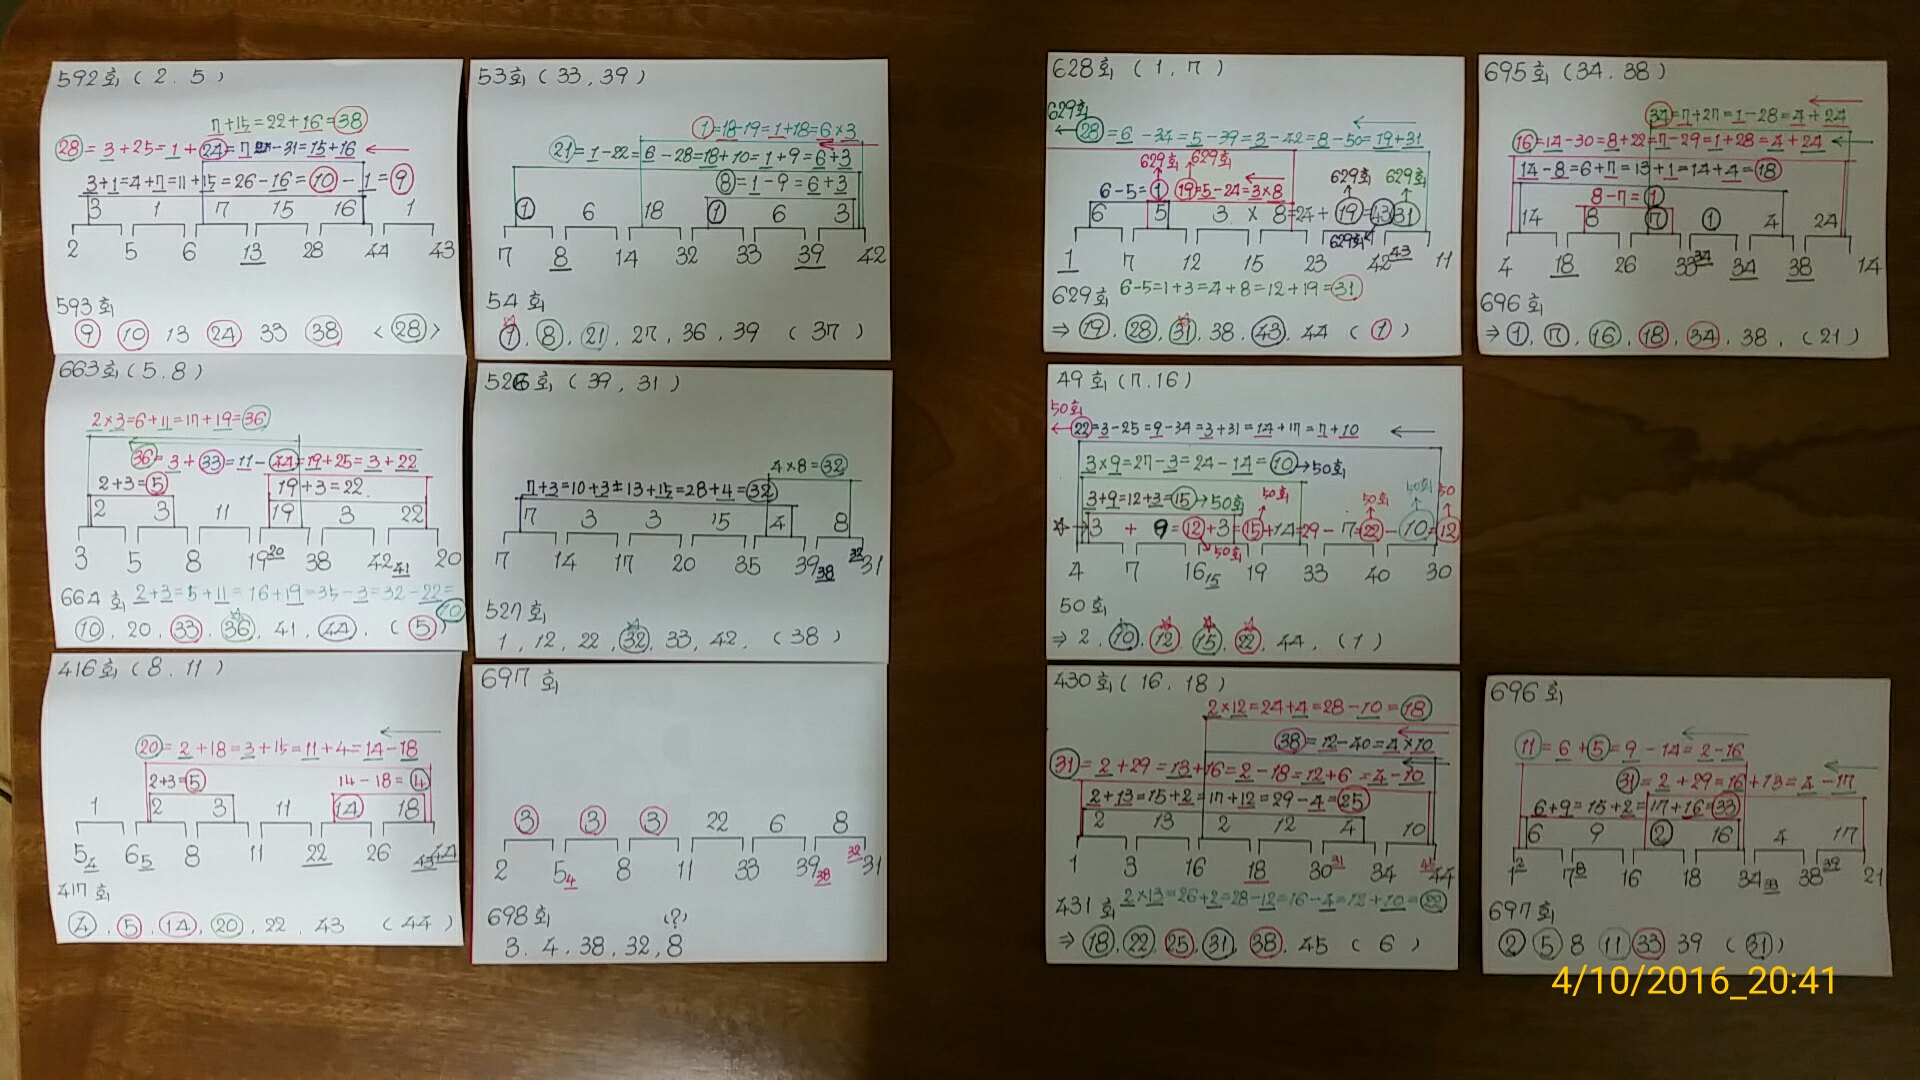 592회 ( 2. 5 )
7+15=22+16=38
28= 3+25=1+24=7 -31=15+16
3+1=4+7=11+15=26-16=10-1=9
3 1 7 15 16 1
2 5 6 13 28 44 43
593회
9 10 13 24 33 38 <28>
53회 (33, 39)
1=18-19=1+18=6×3
21=1-22=6-28=18+10=1+9=6+3
8=1-9=6+3
1 6 18 1 6 3
7 8 14 32 33 39 42
54회
1, 8, 21, 27, 36, 39 ( 37 )
663회 (5.8)
2×3=6+11=17+19=36
36=3+33=11-44=19+25=3+22
2+3=5 19+3=22
2 3 11 19 3 22
3 5 8 19 20 38 42 41 20
664회 2+3=5+11=16+19=35-3=32-22=10
10, 20, 33, 36, 41, 44, ( 5 )
526회 (39, 31)
4×8=32
7+3=10+3=13+15=28+4=32
7 3 3 15 4 8
7 14 17 20 35 39 38 32 31
527회
1, 12, 22, 32, 33, 42, (38)
416회 (8. 11)
20=2+18=3+15=11+4=14-18
2+3=5 14-18=4
1 2 3 11 14 18
5 4 6 5 8 11 22 26 43 44
417회
4, 5, 14, 20, 22, 43 (44)
697회
3 3 3 22 6 8
2 5 4 8 11 33 39 38 32 31
698회 (?)
3. 4. 38, 32, 8
628회 (1, 7)
629회
28=6-34=5-39=3-42=8-50=19+31
629회 629회
6-5=1 19=5-24=3×8 629회 629회
6 5 3 × 8=24+19=43 31
629회
1 7 12 15 23 42 43 11
629회 6-5=1+3=4+8=12+19=31
⇒ 19, 28, 31, 38, 43, 44 ( 1 )
695회 (34. 38)
34=7+27=1-28=4+24
16=14-30=8+22=7-29=1+28=4+24
14-8=6+7=13+1=14+4=18
8-7=1
14 8 7 1 4 24
4 18 26 33 34 34 38 14
696회
⇒ 1, 7, 16, 18, 34, 38, (21)
49회 (7.16)
50회
22=3-25=9-34=3+31=14+17=7+10
3×9=27-3=24-14=10→50회
3+9=12+3=15→50회 50회 50회 50회 50
3 + 9=12+3=15+14=29-7=22-10=12
50회
4 7 16 15 19 33 40 30
50회
⇒ 2, 10, 12, 15, 22, 44, (1)
430회 (16. 18)
2×12=24+4=28-10=18
38=12-40=4×10
31=2+29=13+16=2-18=12+6=4-10
2+13=15+2=17+12=29-4=25
2 13 2 12 4 10
1 3 16 18 30 31 34 45 44
431회 2×13=26+2=28-12=16-4=12+10=22
⇒ 18, 22, 25, 31, 38, 45 ( 6 )
696회
11=6+5=9-14=2-16
31=2+29=16+13=4-17
6+9=15+2=17+16=33
6 9 2 16 4 17
1 2 7 8 16 18 34 33 38 39 21
697회
2 5 8 11 33 39 (31)
4/10/2016_20:41